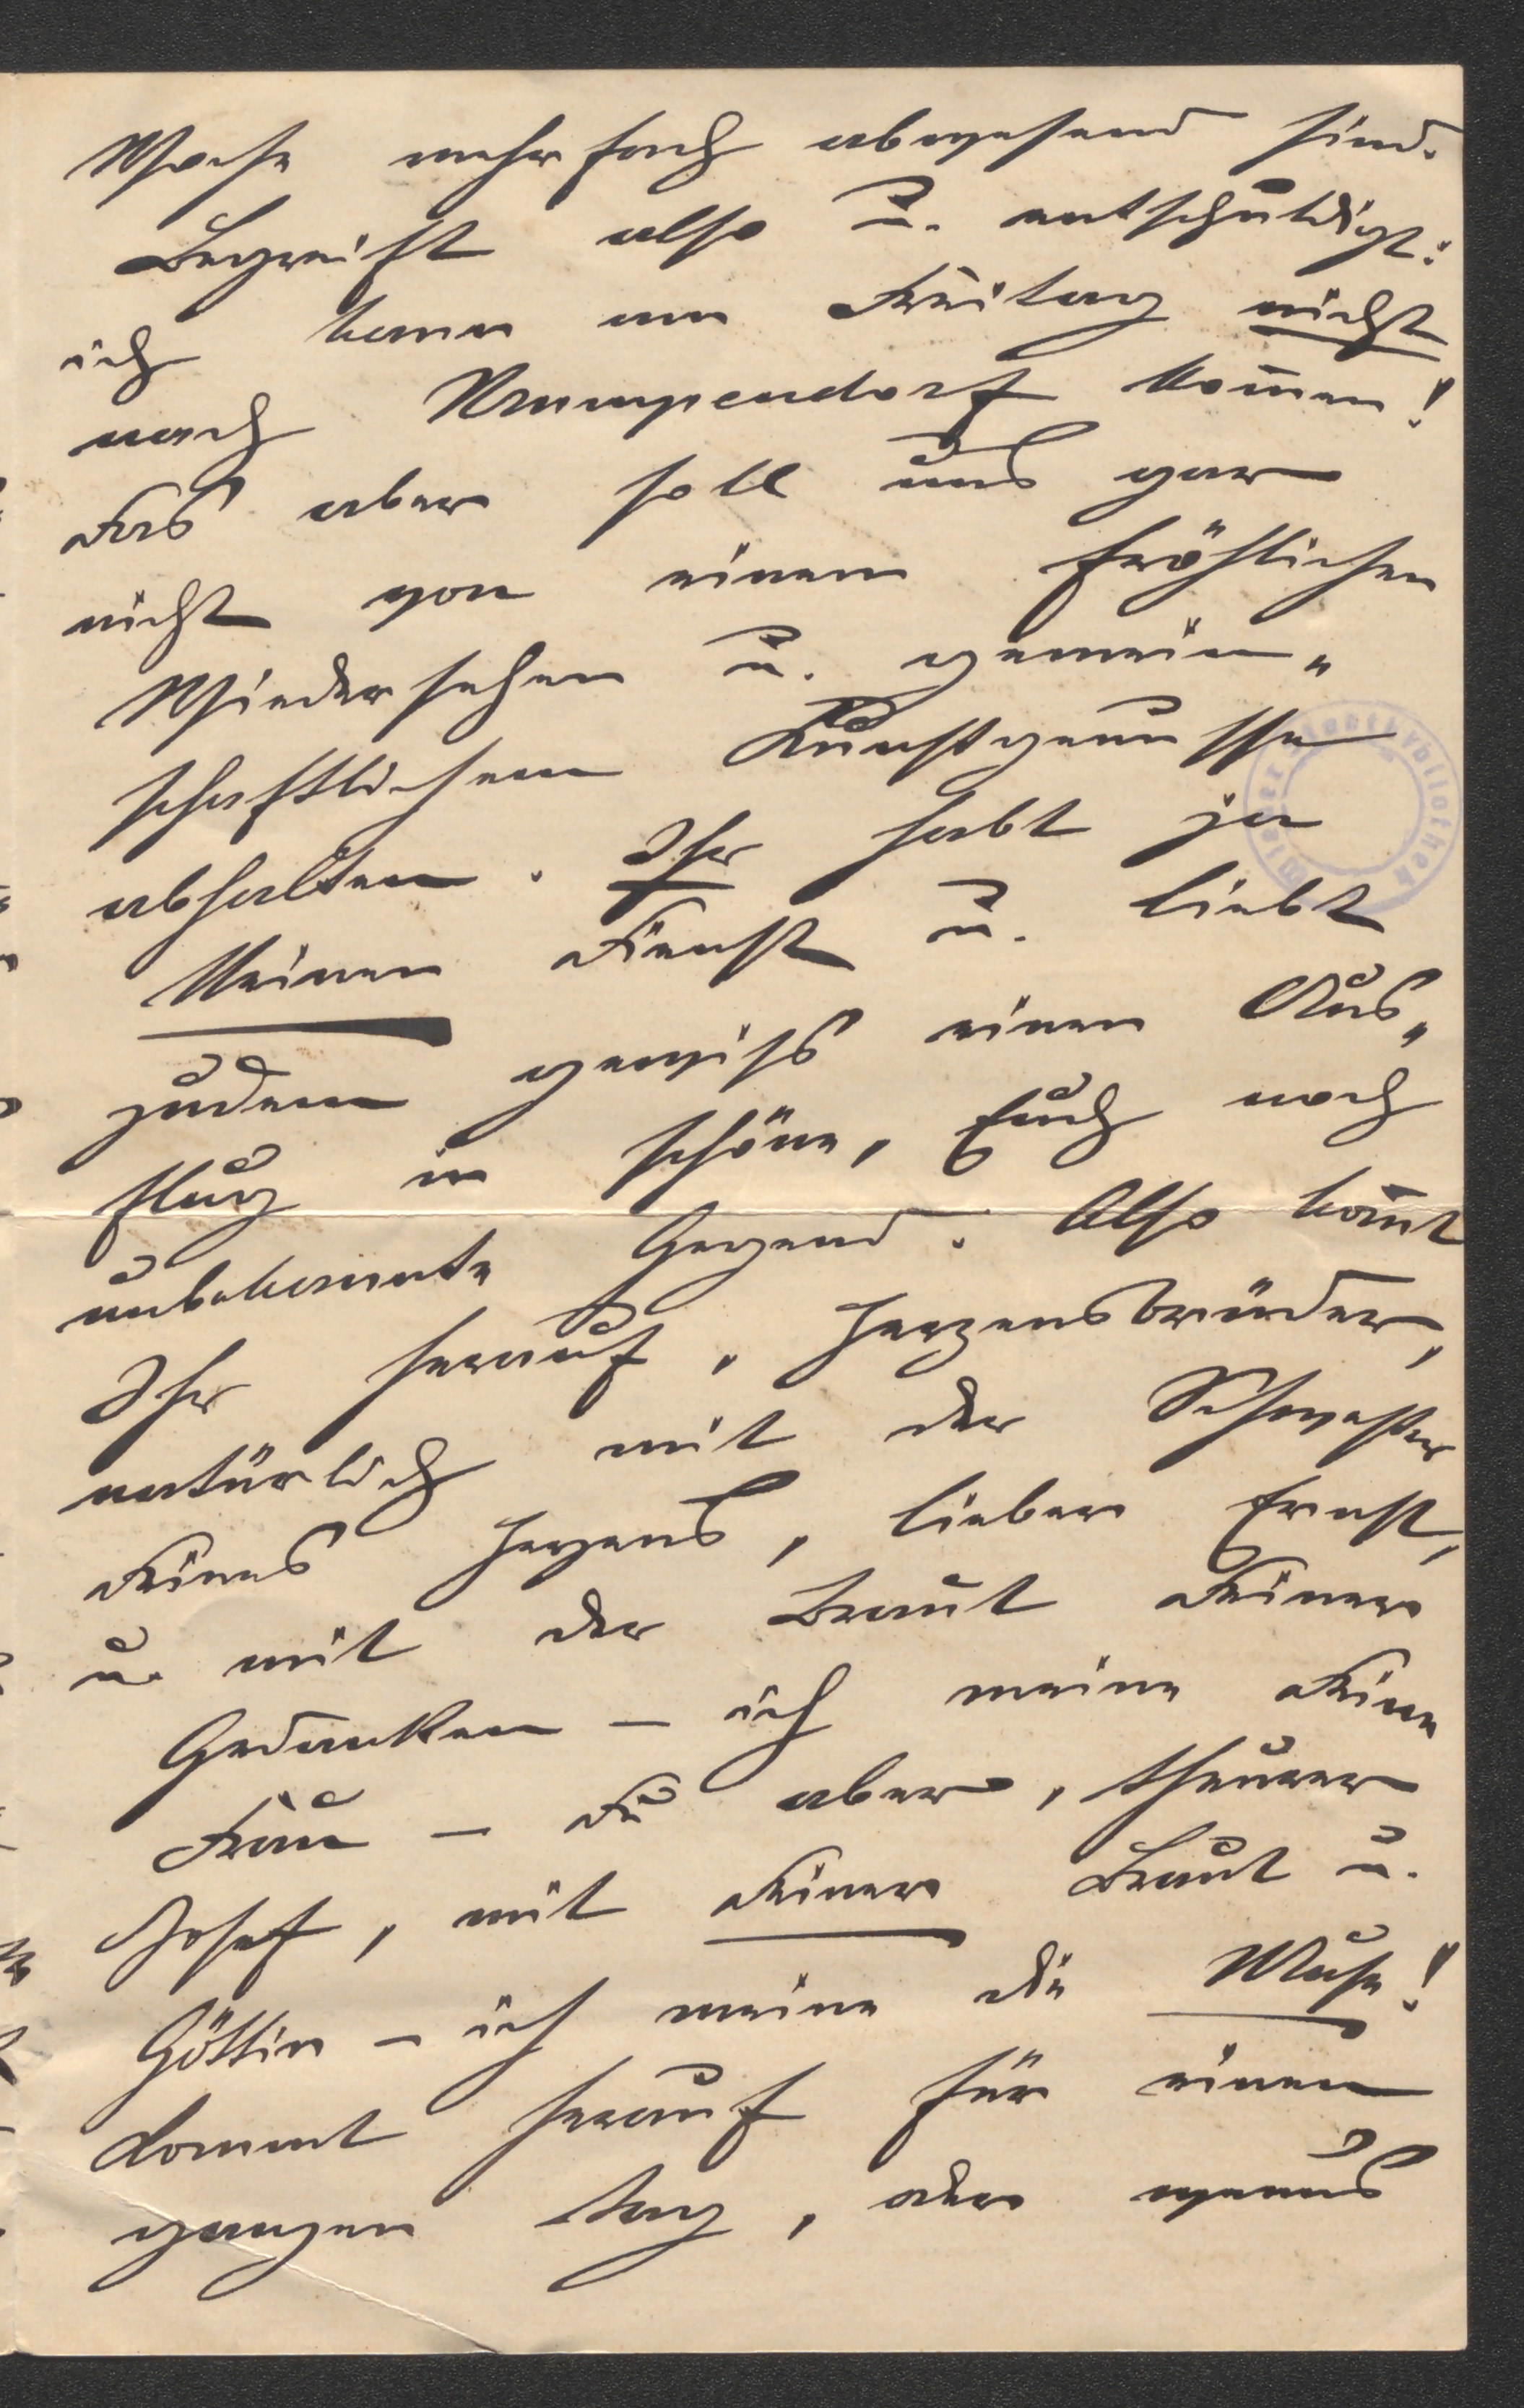 Woche mehrfach abwesend sind.
Begreift also u. entschuldigt:
ich kann am Freitag nicht
nach Krumpendorf kom̅en!
Das aber soll uns gar
nicht von einem fröhlichen
Wiedersehen u. gemein„
schaftlichem Kunstgenusse
abhalten. Ihr habt ja
keinen Dienst u. liebt
zudem gewiß einen Aus„
flug in schöne, Euch noch
unbekannte Gegend. Also kom̅t
Ihr herauf, Herzensbrüder,
natürlich mit der Schwester
Deines Herzens, lieber Ernst,
u. mit der Braut Deiner
Gedanken – ich meine Deine
Frau – Du aber, theurer
Josef, mit Deiner Braut u.
Göttin – ich meine die Muse!
Kommt herauf für einen
ganzen Tag, oder wenns
Wiener Stadtbibliothek